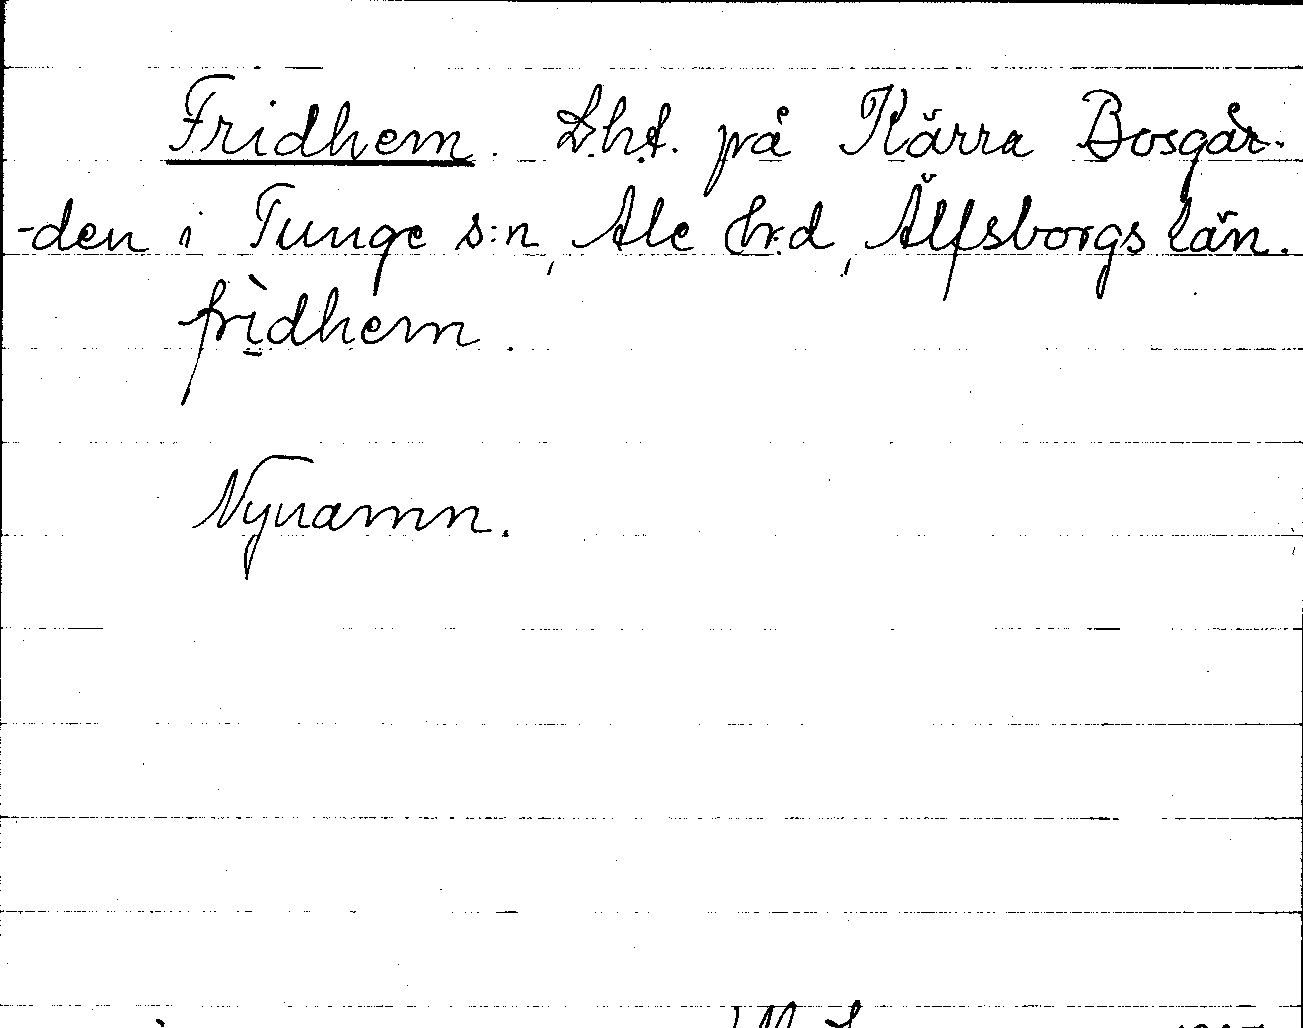 Fridhem. L.h.t. på Kärra Bosgår-
-den i Tunge s:n, Ale h:d, Älfsborgs län.
frìdhem.
Nynamn.